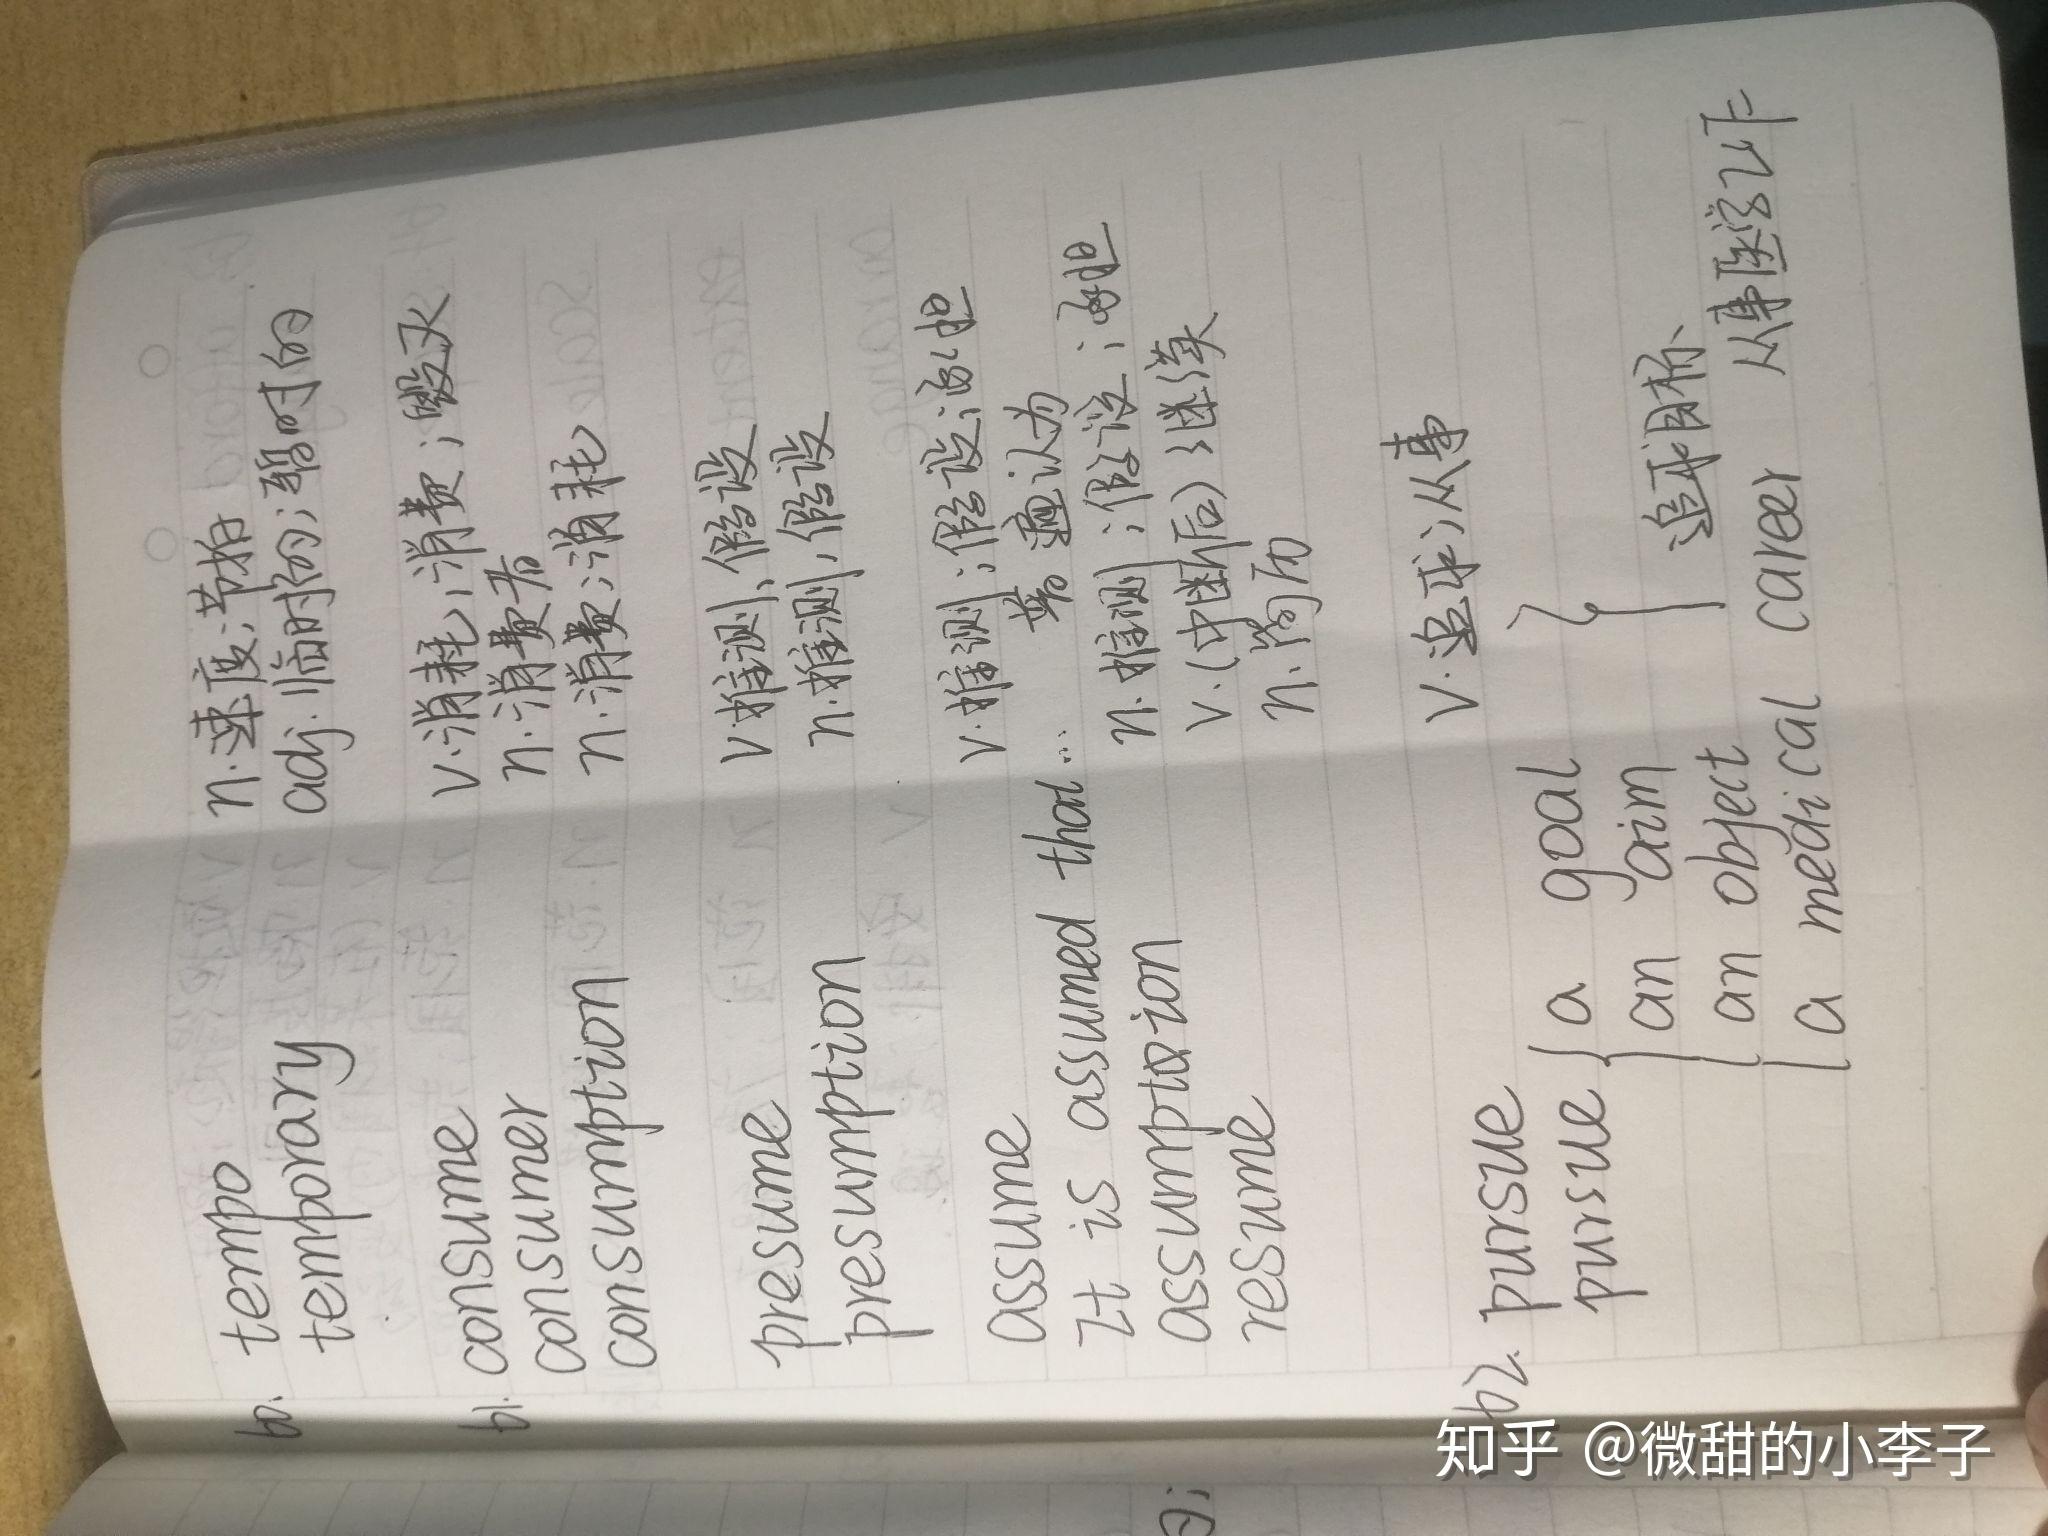 60. tempo n.速度;节拍
temporary adj.临时的;暂时的
61. consume v.消耗;消费;毁灭
consumer n.消费者
consumption n.消费;消耗
presume v.推测,假设
presumption n.推测,假设
assume v.推测;假设;承担
It is assumed that... 普遍认为
assumption n.推测;假设;承担
resume v.(中断后)继续
n.简历
62. pursue v.追求;从事
pursue { a goal
an aim } 追求目标
an object
a medical career 从事医疗工作
知乎 @微甜的小李子